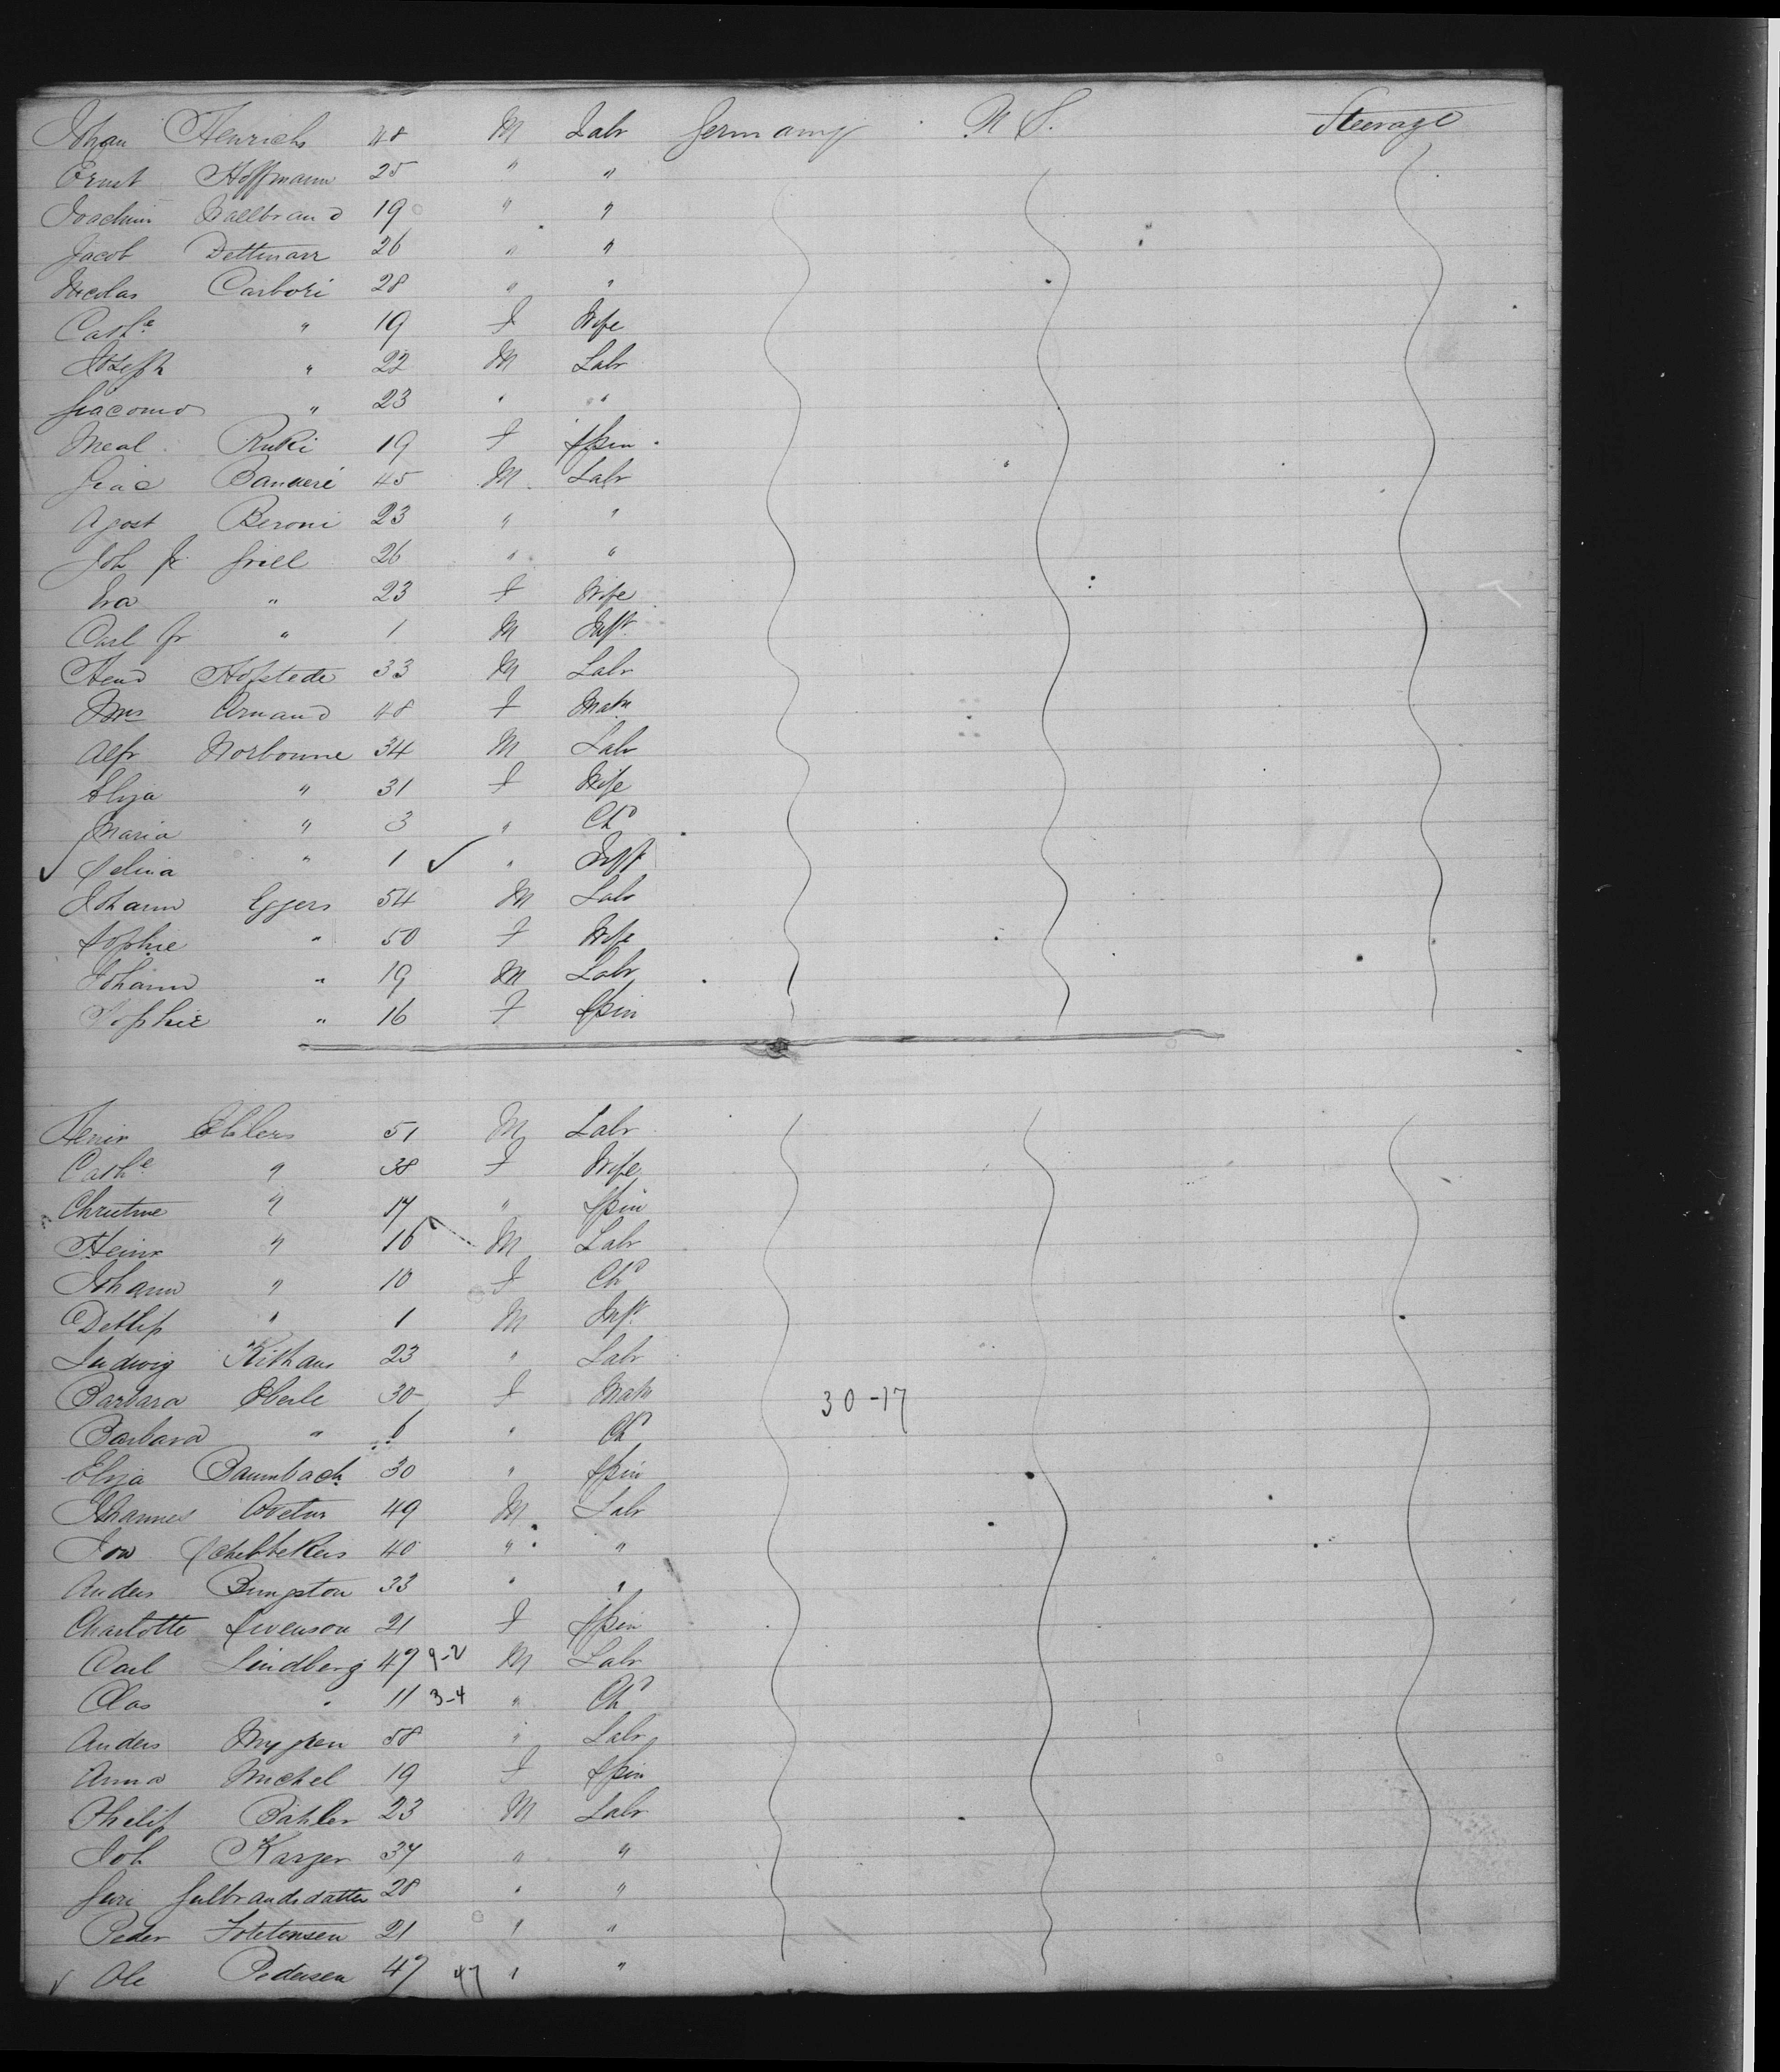 Johan Henrichs 48 M Labr Germany U S. Steerage
Ernst Hoffmann 25 " "
Joachim Wallbrand 19 " "
Jacob Dettmarr 26 " "
Nicolas Carbori 28 " "
Cathe " 19 F Wife
Joseph " 22 M Labr
Giacomo " 23 " "
Meal Ruki 19 F Spin
Giac 45 M Labr
Agost Beroni 23 " "
Joh Jr Grill 26 " "
Eva " 23 F Wife
Carl Jr " 1 M Inft
Hend Hofstede 33 M Labr
Mrs Arnaud 48 F Matn
Alfr Norbourne 34 M Labr
Eliza " 31 F Wife
Maria " 3 " Chd
✓ Selina " 1 ✓ " Inft
Johann Eggers 54 M Labr
Sophie " 50 F Wife
Johann " 19 M Labr
Sophie " 16 F Spin
Heinr Ehlers 51 M Labr
Cathe " 38 F Wife
Christine " 17 " Spin
Heinr " 16 M Labr
Johann " 10 F Chd
Detlef " 1 M Inft
Ludwig Kithaus 23 " Labr
Barbara Eberle 30 F Matn 30-17
Barbara " 6 " Chd
Eliza Baumbach 30 " Spin
Johannes 49 M Labr
40 " "
Anders Bungston 33 " "
Charlotte Svenson 21 F Spin
Carl Lindberg 47 9-2 M Labr
Clas " 11 3-4 " Chd
Anders 58 " Labr
Anna Michel 19 F Spin
Philip Bahler 23 M Labr
Joh Karger 37 " "
Guri Gulbrandsdatter 28 " "
Peder 21 " "
✓ Ole Pedersen 47 47 " "